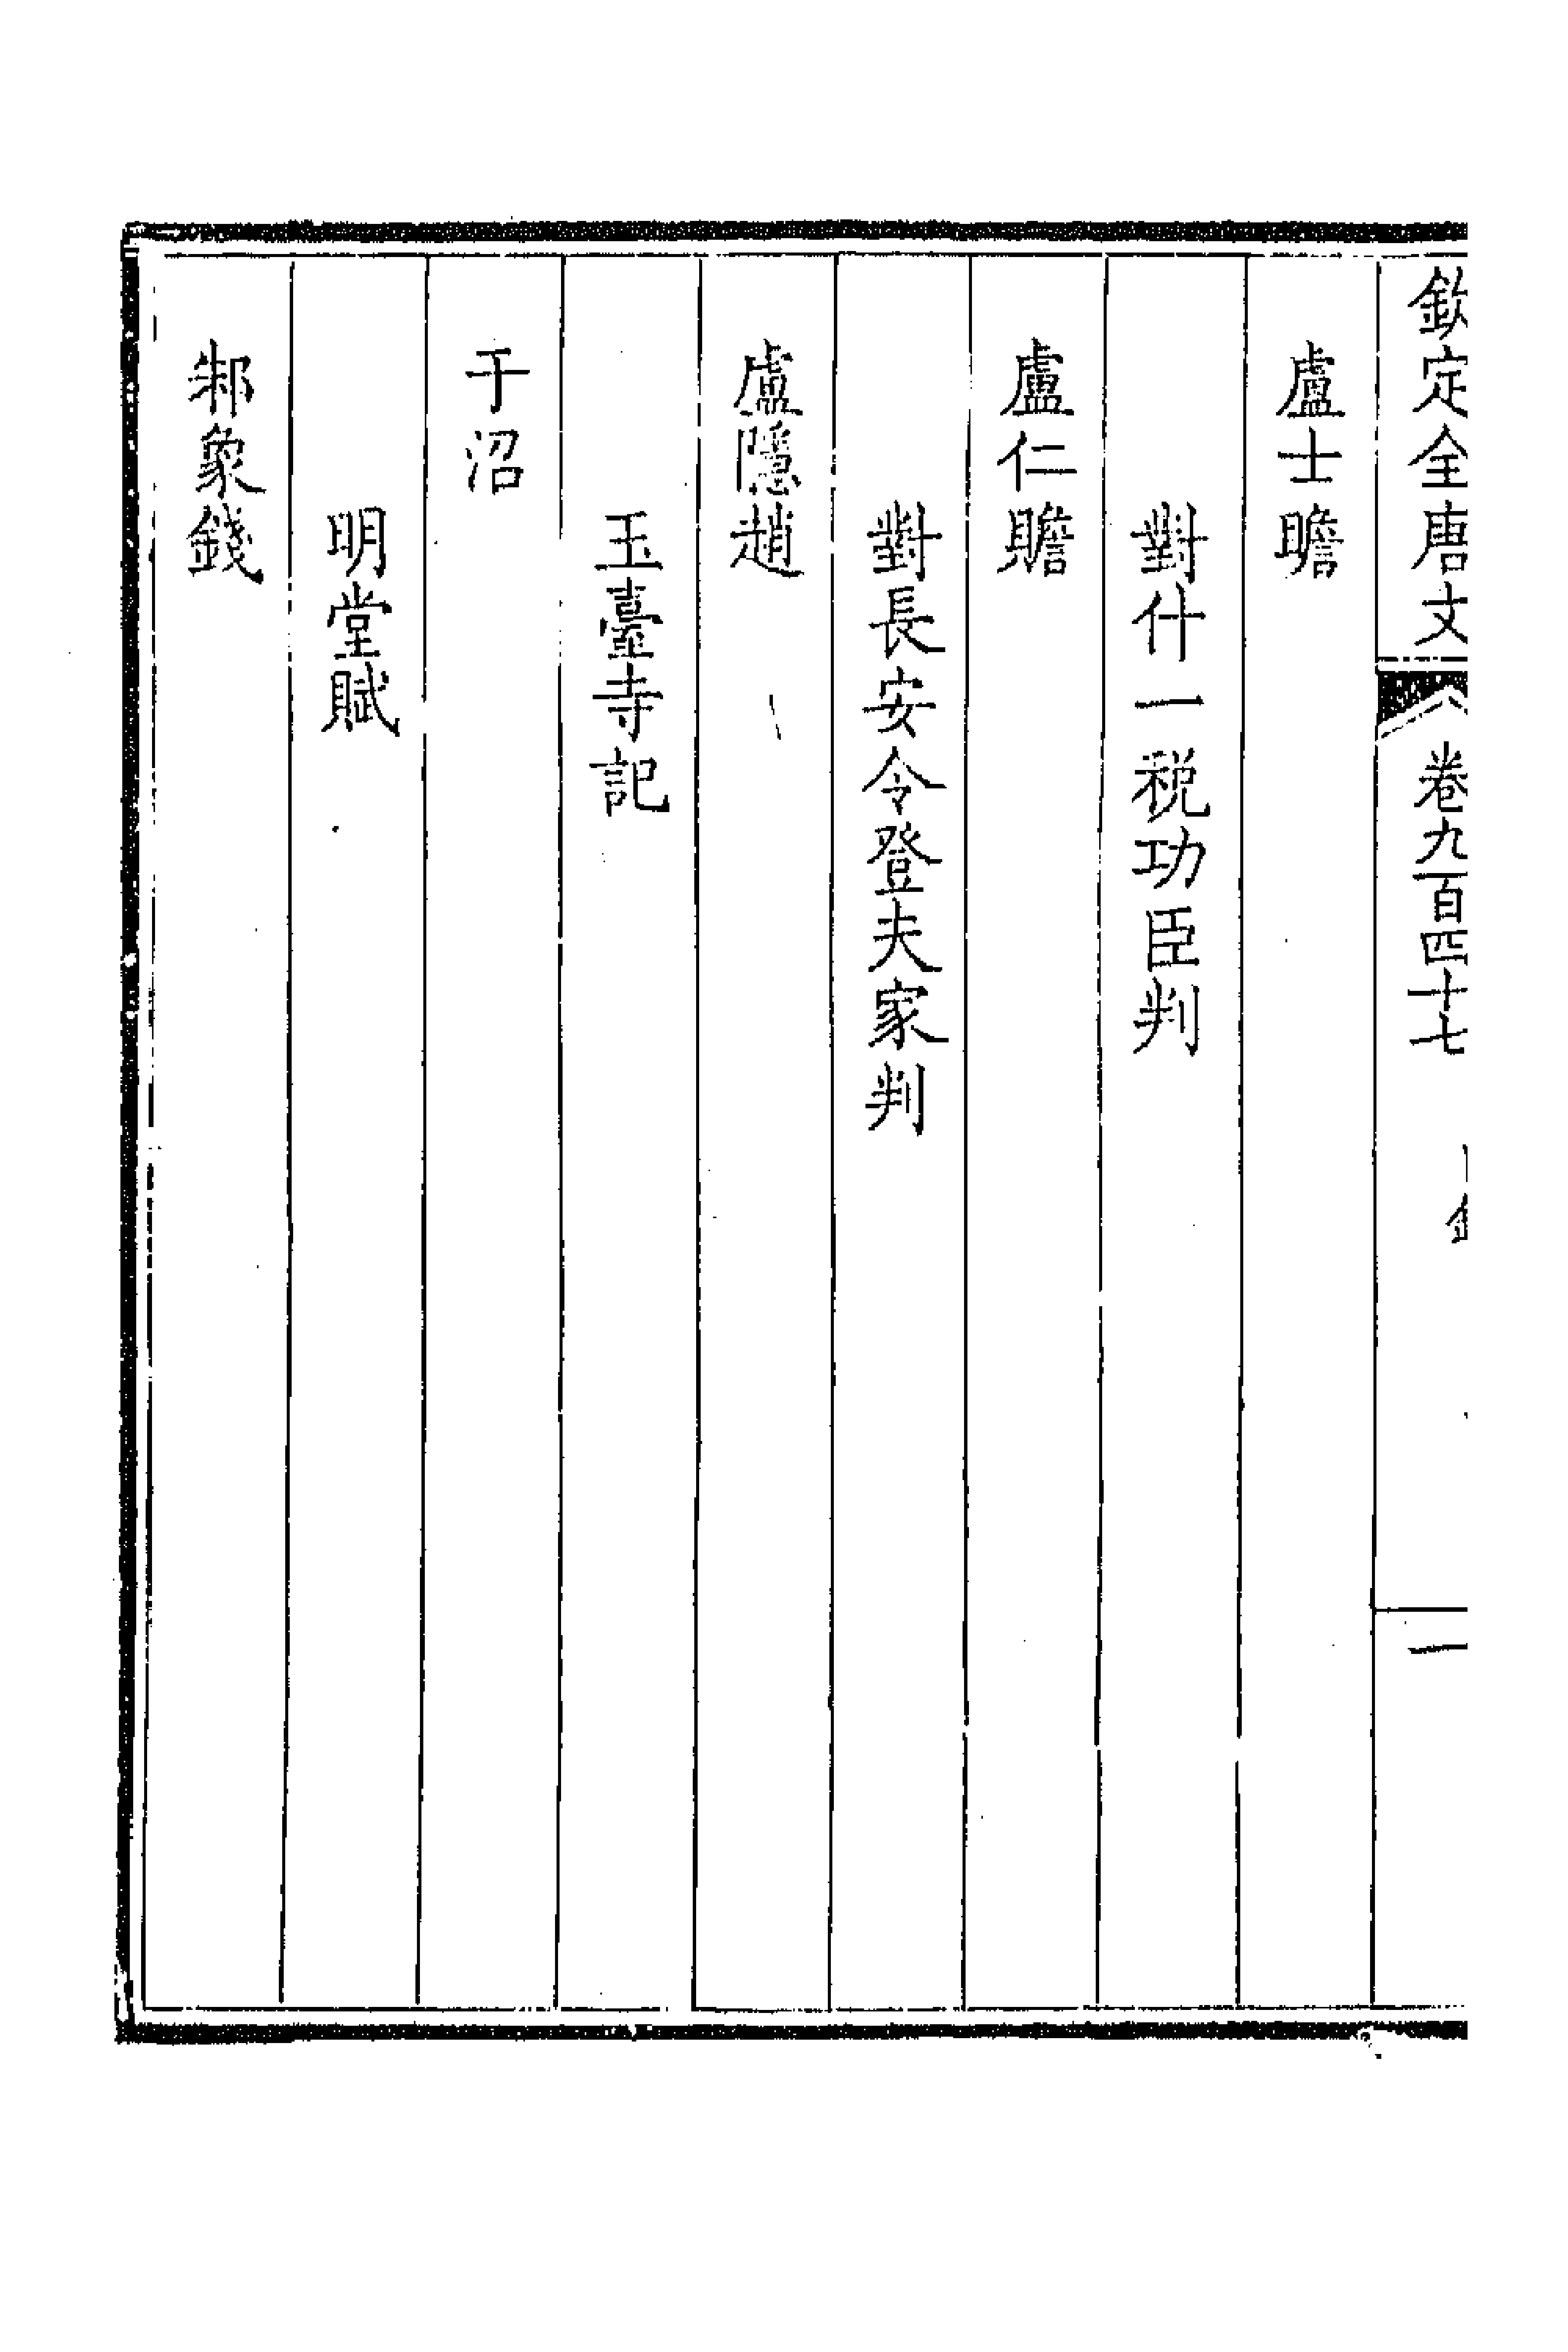 欽定全唐文 卷九百四十七 目錄 一
盧士瞻
對什一稅功臣判
盧仁贍
對長安令登夫家判
盧隱趙
玉臺寺記
于沼
明堂賦
邾象錢